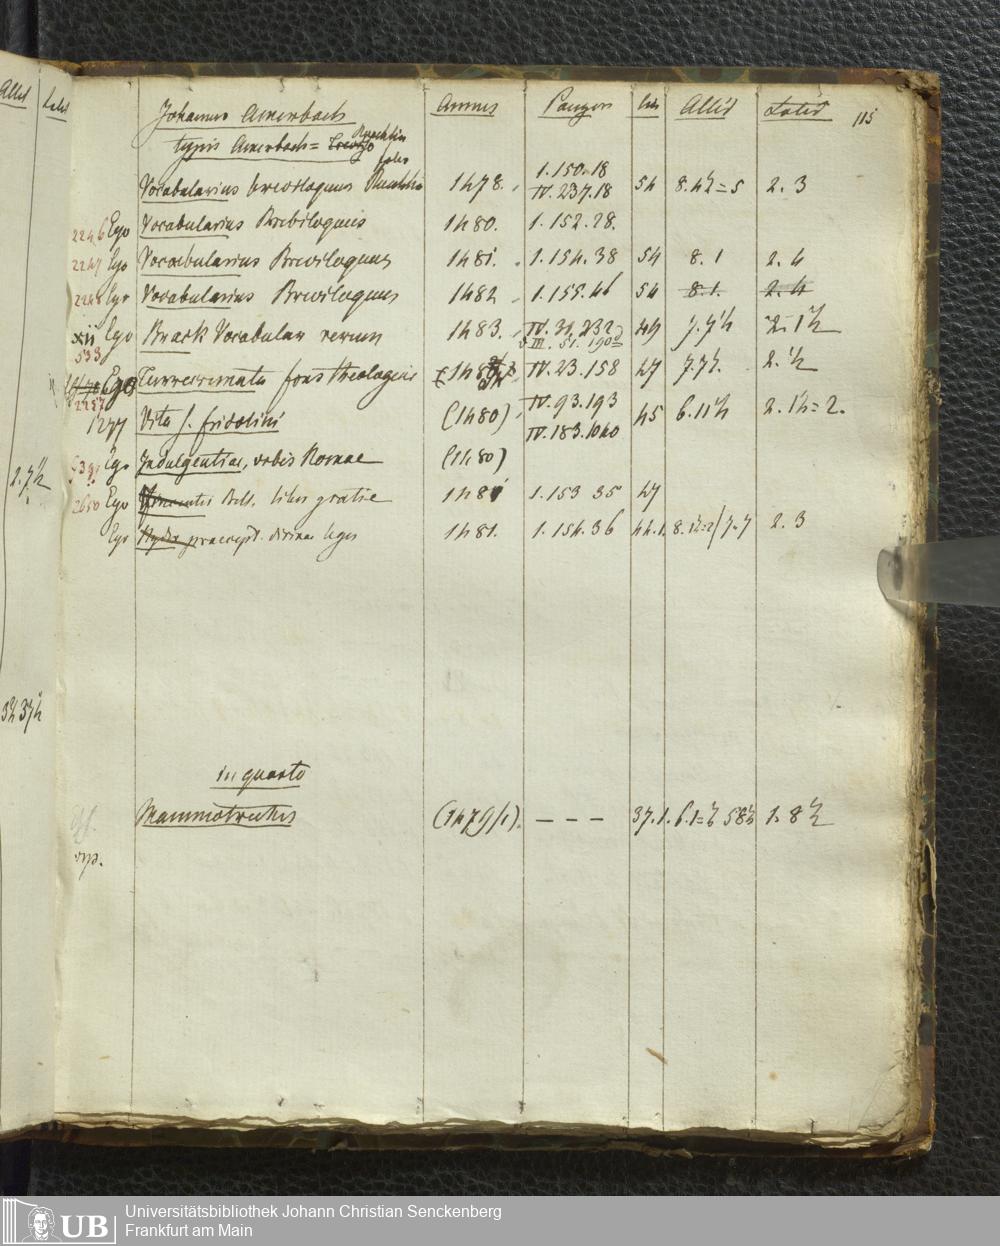 Altit Latit
Johannes Amerbach Annus Panzer lin Altit Latit 115
typis Amerbach = Reuchlin
folio
Vocabularius breviloquus Reuchlin 1478. 1.150.18 IV.237.18 54 8.4½=5 2.3
2246 Ego Vocabularius Breviloquus 1480. 1.152.28.
2247 Ego Vocabularius Breviloquus 1481. 1.154.38 54 8.1 2.4
2248 Ego Vocabularius Breviloquus 1482 1.155.46 54 8.1. 2.4
xii Ego Brack Vocabular rerum 1483. IV.31.232 49 7.7½ 2.1½
533 III.51.190
Ego Turrecremata fons theologiae IV.23.158 47 7.7½. 2.½
2257
1277 Vita S. fridolini (1480) IV.93.193 IV.183.1040 45 6.11½ 2.1½=2.
2.7½ Ego Indulgentiae, urbis Romae (1480)
2650 Ego Bell. liber gratie 1481 1.153 35 47
Ego Nyder praecept. divinae legis 1481. 1.154.36 44.1. 8.1½=2/7.7 2.3
37½
in quarto
Mammotrectus (1479/1). – – – 37.1. 6.1=½ 58½ 1.8½
UB Universitätsbibliothek Johann Christian Senckenberg
Frankfurt am Main